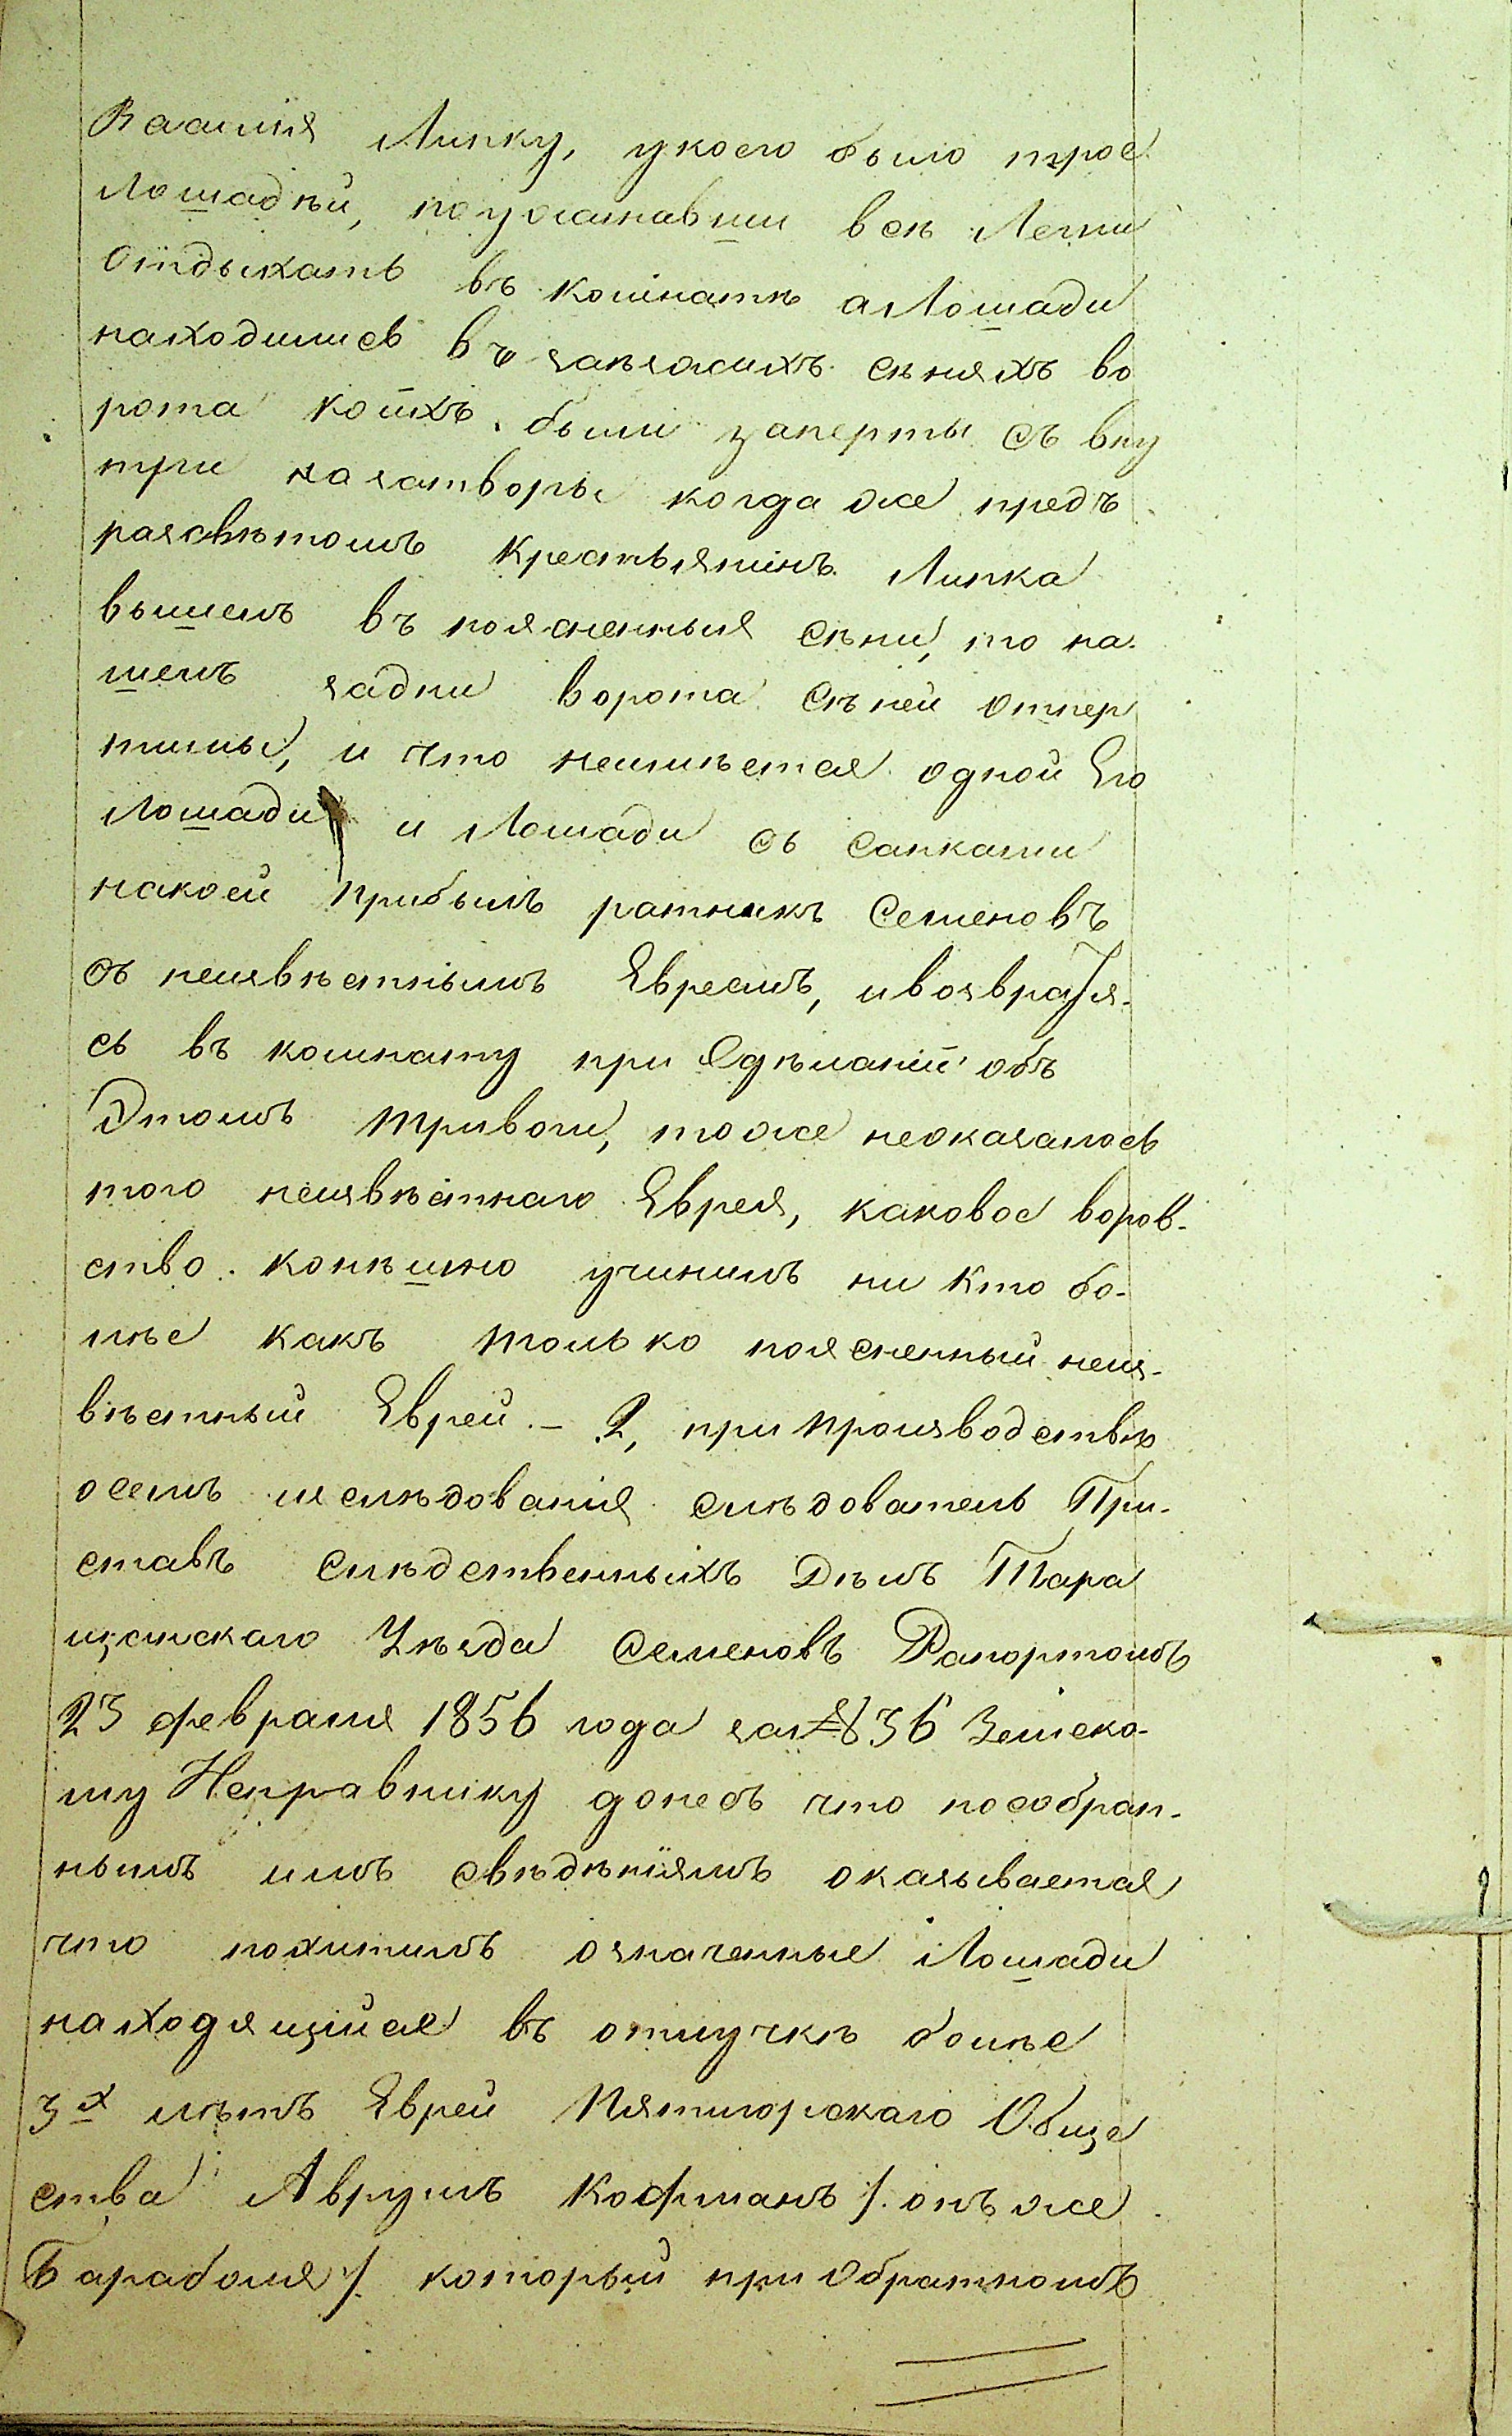 Василія Липку, укоего было трое
Лошадѣй, поужинавши всѣ Легли
Отдыхать въ комнатѣ а Лошади
находились въ заѣзжихъ сѣняхъ во
рота коихъ были заперты съ вну
три на затворы когда же предъ
разсвѣтомъ Крестьянинъ Липка
вышелъ въ поясненныя сѣни, то на-
шелъ задни ворота Сѣней отпер
тими, и что неимѣется одной Его
Лошади и Лошади съ санками
накоей прибылъ ратникъ Семеновъ
съ неизвѣстнымъ Евреемъ, ивозвратя-
сь въ комнату при Сдѣланіи объ
Этомъ тривоги, тоже неоказалось
того неизвѣстнаго Еврея, каковое воров-
ство конѣшно учинилъ ни кто бо-
лѣе какъ только поясненный неиз-
вѣстный Еврей. – 2, при производствѣ
осемъ изслѣдованія слѣдователь При-
ставъ Слѣдственныхъ Дѣлъ Тара
щанскаго Уѣзда Семеновъ Рапортомъ
23 февраля 1856 года за № 36 Земско-
му Исправнику донесъ что пособран-
нымъ имъ свѣдѣніямъ оказывается
что похитилъ означенные Лошади
находящійся въ отлучкѣ болѣе
3х лѣтъ Еврей Пятигорскаго Обще
ства Аврумъ Кофманъ /. онъ же
Бараболя ./ который при Обратномъ